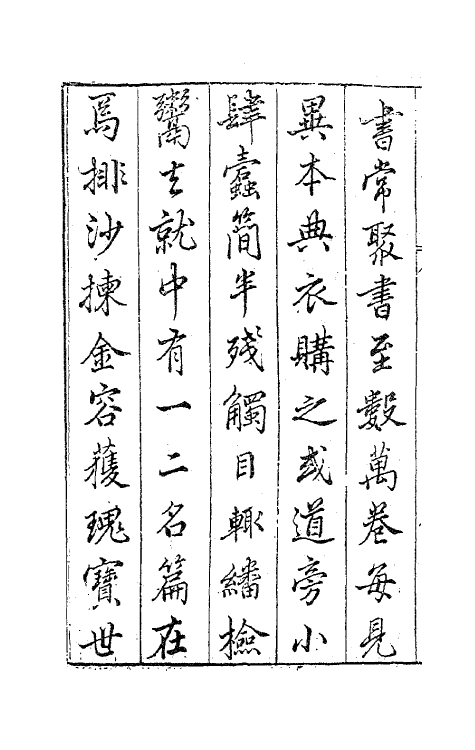 書常聚書至數萬卷每見
異本典衣購之或道旁小
肆蠹簡半殘觸目輒繙檢
鬻去就中有一二名篇在
焉排沙揀金容獲瑰寶世